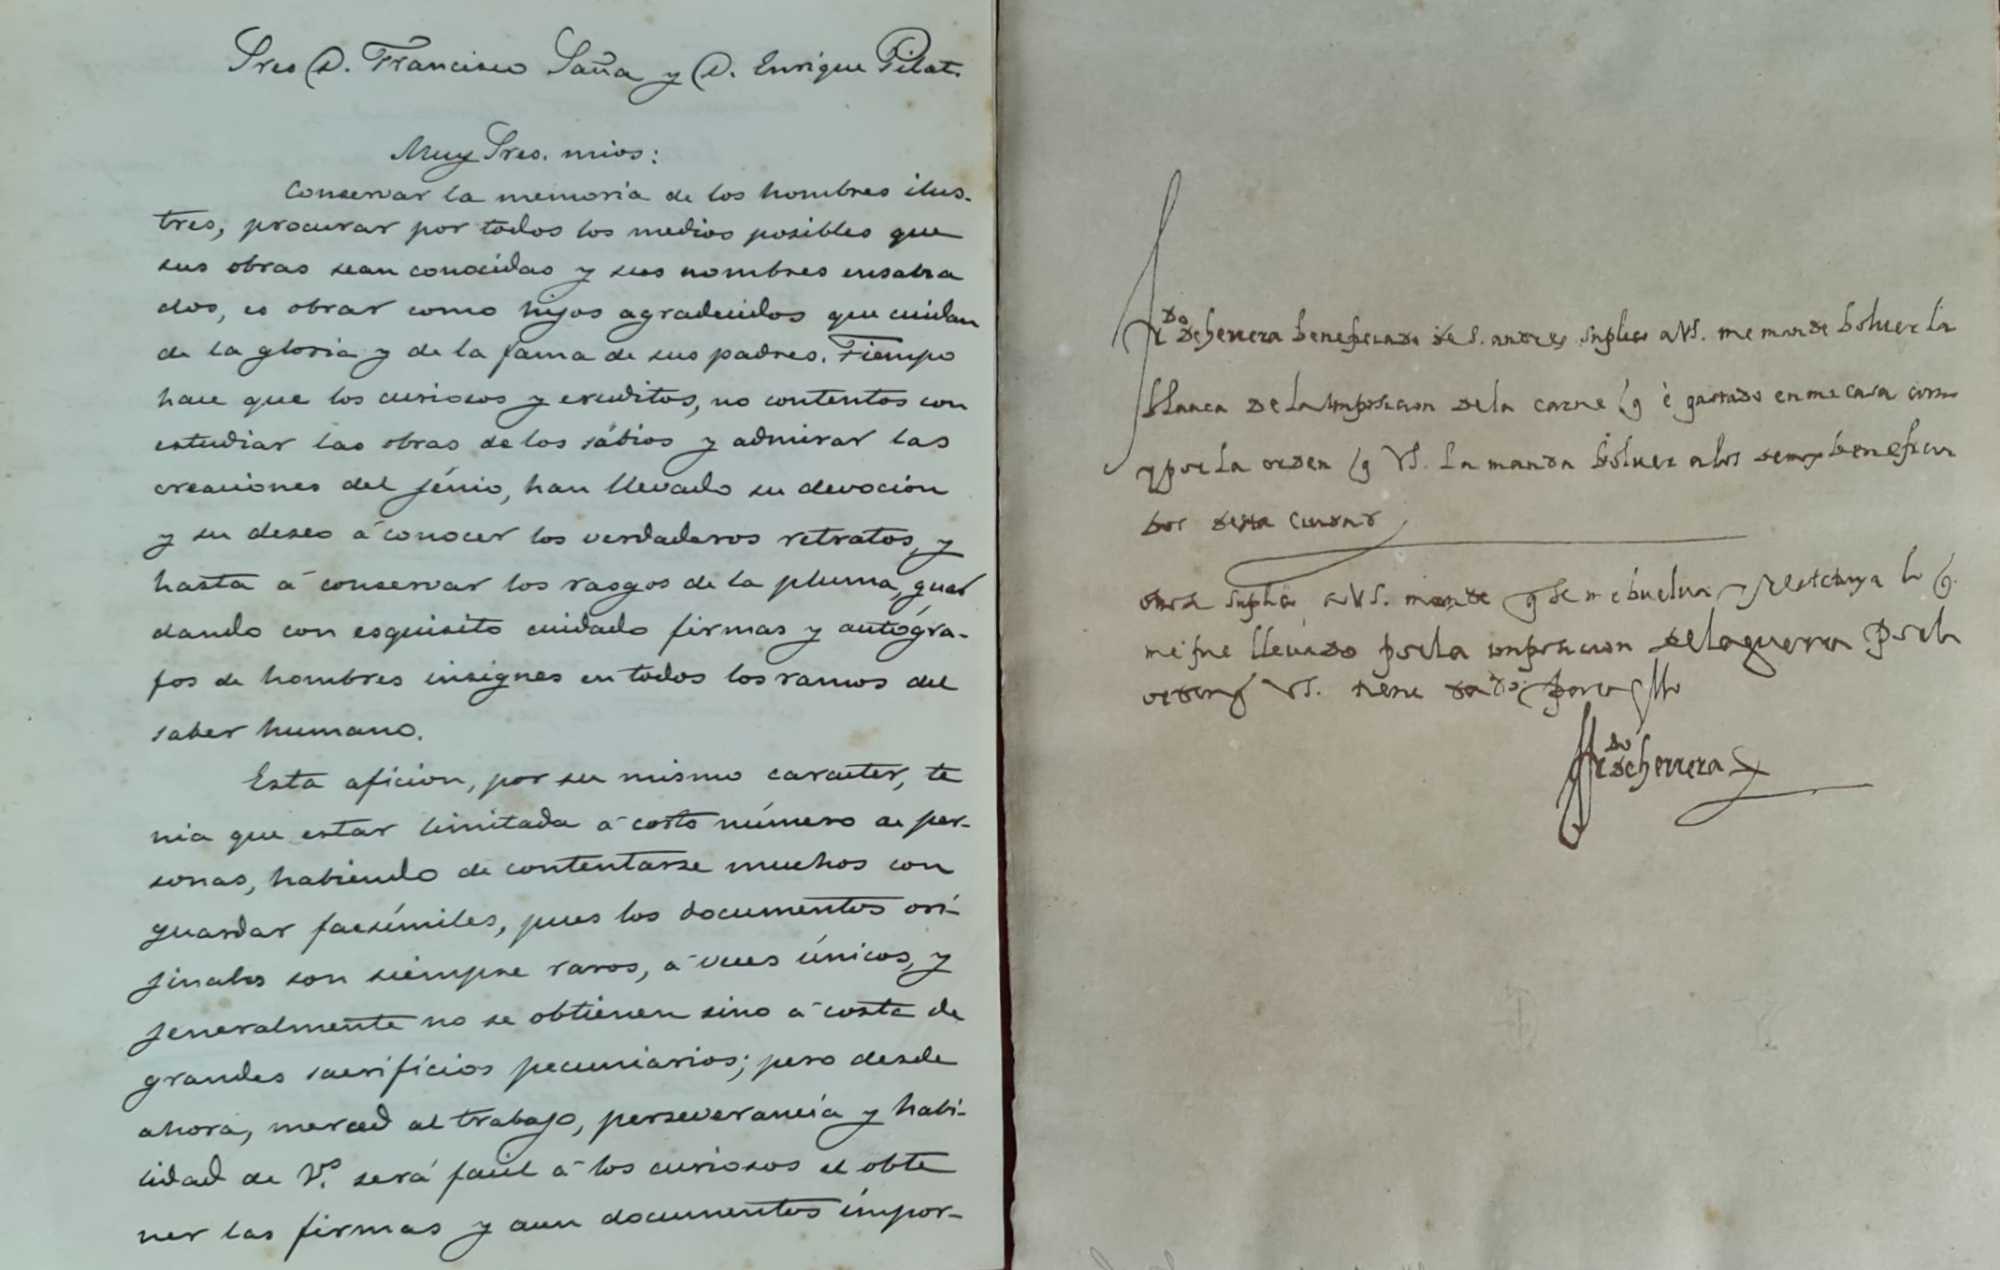 Sres D. Francisco Saña y D. Enrique Pilat.
Muy Sres. mios:
Conservar la memoria de los hombres ilus-
tres, procurar por todos los medios posibles que
sus obras sean conocidas y sus nombres ensalza
dos, es obrar como hijos agradecidos que cuidan
de la gloria y de la fama de sus padres. Tiempo
hace que los curiosos y eruditos, no contentos con
estudiar las obras de los sábios y admirar las
creaciones del jénio, han llevado su devocion
y su deseo á conocer los verdaderos retratos, y
hasta á conservar los rasgos de la pluma, guar
dando con esquisito cuidado firmas y autógra-
fos de hombres insignes en todos los ramos del
saber humano.
Esta aficion, por su mismo caracter, te
nia que estar limitada á corto número de per-
sonas, habiendo de contentarse muchos con
guardar facsímiles, pues los documentos ori-
jinales son siempre raros, á veces únicos, y
jeneralmente no se obtienen sino á costa de
grandes sacrificios pecuniarios; pero desde
ahora, merced al trabajo, perseverancia y habi-
lidad de Vs. será facil á los curiosos el obte
ner las firmas y aun documentos impor-
her.do de herrera beneficiado de S. andres suplico a VS. me mande bolver la
blanca de la imposicion de la carne q é gastado en mi casa
y por la orden q VS. la manda bolver a los demas beneficia
dos desta ciudad
otrosi suplico a VS. mande q se me buelva y restituya lo q
me fue llevado por la imposicion de la guerra por la
orden q VS. tiene dado por ello
her.do de herrera